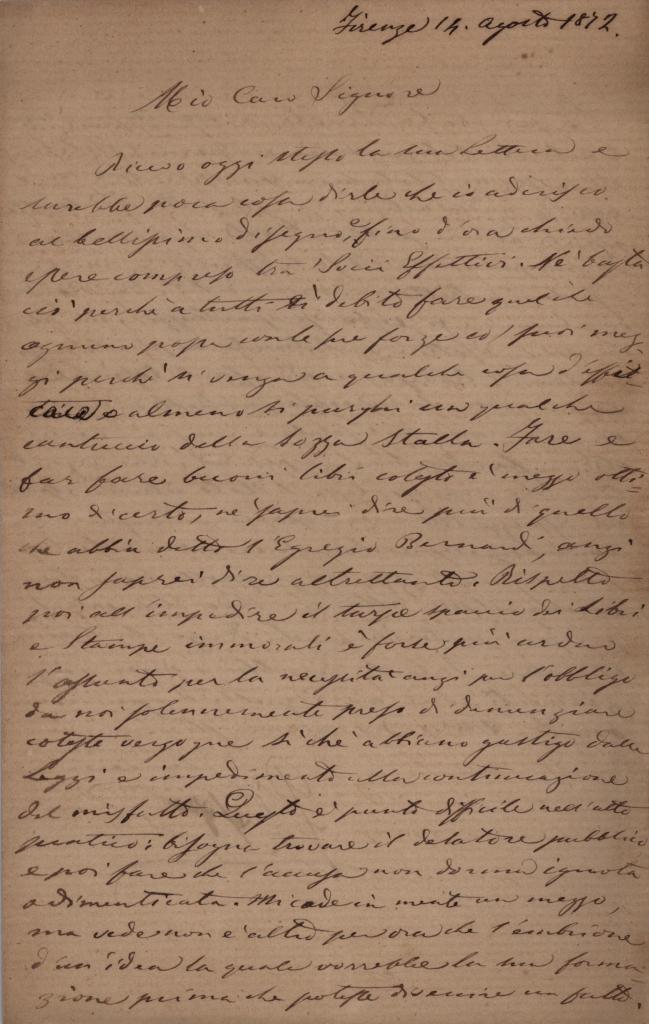 Firenze 14. Agosto 1872.
Mio Caro Signore
Ricevo oggi stesso la sua Lettera e
sarebbe poca cosa dirle che io aderisco
al bellissimo disegno, e fino d'ora chiedo
essere compreso tra' Socii Effettivi. Nè basta
ciò perchè a tutti è debito fare quel che
ognuno possa con le sue forze ed i suoi mez-
zi perchè si venga a qualche cosa d'
o almeno si purghi un qualche
cantuccio della sozza Stalla. Fare e
far fare buoni libri cotesto è mezzo otti-
mo di certo, nè saprei dire più di quello
che abbia detto l'Egregio Bernardi, anzi
non saprei dire altrettanto. Rispetto
poi all'impedire il turpe spaccio dei Libri
e Stampe immorali è forse più arduo
l'assunto per la necessità anzi per l'obbligo
da noi solennemente preso di denunziare
coteste vergogne sì che abbiano gastigo dalle
Leggi e impedimento alla continuazione
del misfatto. Questo è punto difficile nell'atto
pratico: bisogna trovare il delatore pubblico
e poi fare che l'accusa non dorma ignota
o dimenticata. Mi cade in mente un mezzo,
ma vede non è altro per ora che l'embrione
d'un'idea la quale vorrebbe la sua forma-
zione prima che potesse divenire un fatto.